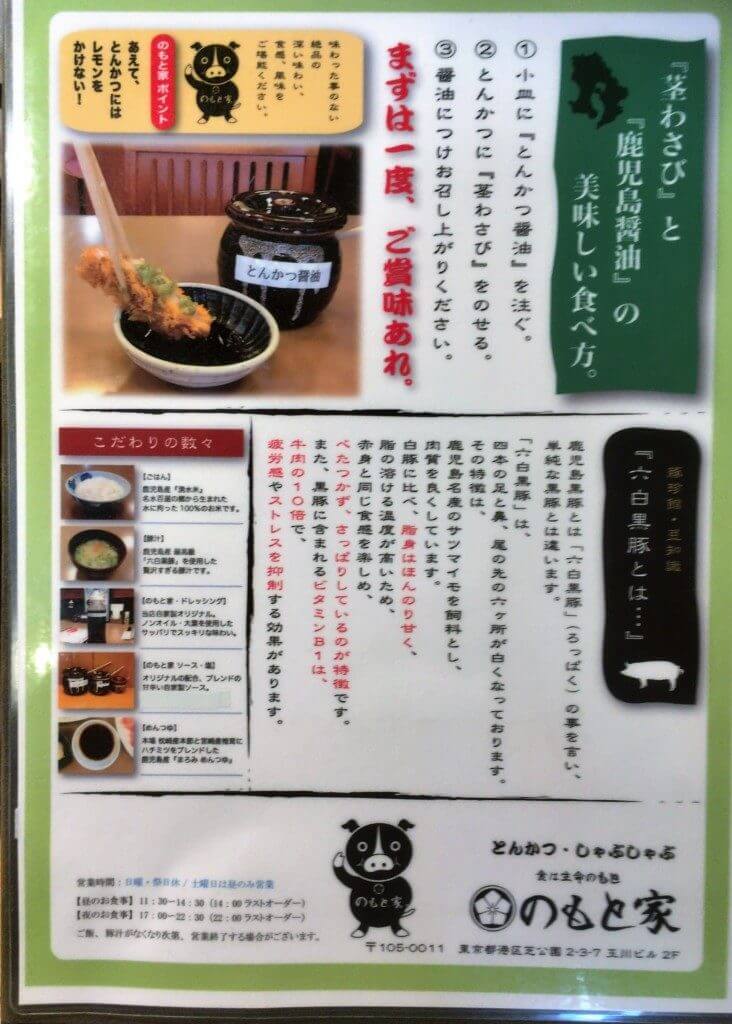 『茎わさび』と
『鹿児島醤油』の
美味しい食べ方。
① 小皿に『とんかつ醤油』を注ぐ。
② とんかつに『茎わさび』をのせる。
③ 醤油につけお召し上がりください。
まずは一度、ご賞味あれ。
味わった事のない
絶品の
深い味わい、
食感、風味を
ご堪能ください。
のもと家
のもと家 ポイント
あえて、
とんかつには
レモンを
かけない！
とんかつ醤油
豚珍館・豆知識
『六白黒豚とは…』
鹿児島黒豚とは「六白黒豚」（ろっぱく）の事を言い、
単純な黒豚とは違います。
「六白黒豚」は、
四本の足と鼻、尾の先の六ヶ所が白くなっております。
その特徴は、
鹿児島名産のサツマイモを飼料とし、
肉質を良くしています。
白豚に比べ、脂身はほんのり甘く、
脂の溶ける温度が高いため、
赤身と同じ食感を楽しめ、
べたつかず、さっぱりしているのが特徴です。
また、黒豚に含まれるビタミンB1は、
牛肉の10倍で、
疲労感やストレスを抑制する効果があります。
こだわりの数々
【ごはん】
鹿児島産『湧水米』
名水百選の郷から生まれた
水に拘った 100%のお米です。
【豚汁】
鹿児島産 最高級
『六白黒豚』を使用した
贅沢すぎる豚汁です。
【のもと家・ドレッシング】
当店自家製オリジナル。
ノンオイル・大葉を使用した
サッパリでスッキリな味わい。
【のもと家 ソース・塩】
オリジナルの配合、ブレンドの
甘辛い自家製ソース。
【めんつゆ】
本場 枕崎産本節と宮崎産椎茸に
ハチミツをブレンドした
鹿児島産『まろみ めんつゆ』
とんかつ・しゃぶしゃぶ
食は生命のもと
のもと家
のもと家
〒105-0011 東京都港区芝公園 2-3-7 玉川ビル 2F
営業時間：日曜・祭日休 / 土曜日は昼のみ営業
【昼のお食事】11：30～14：30（14：00 ラストオーダー）
【夜のお食事】17：00～22：30（22：00 ラストオーダー）
ご飯、豚汁がなくなり次第、営業終了する場合がございます。